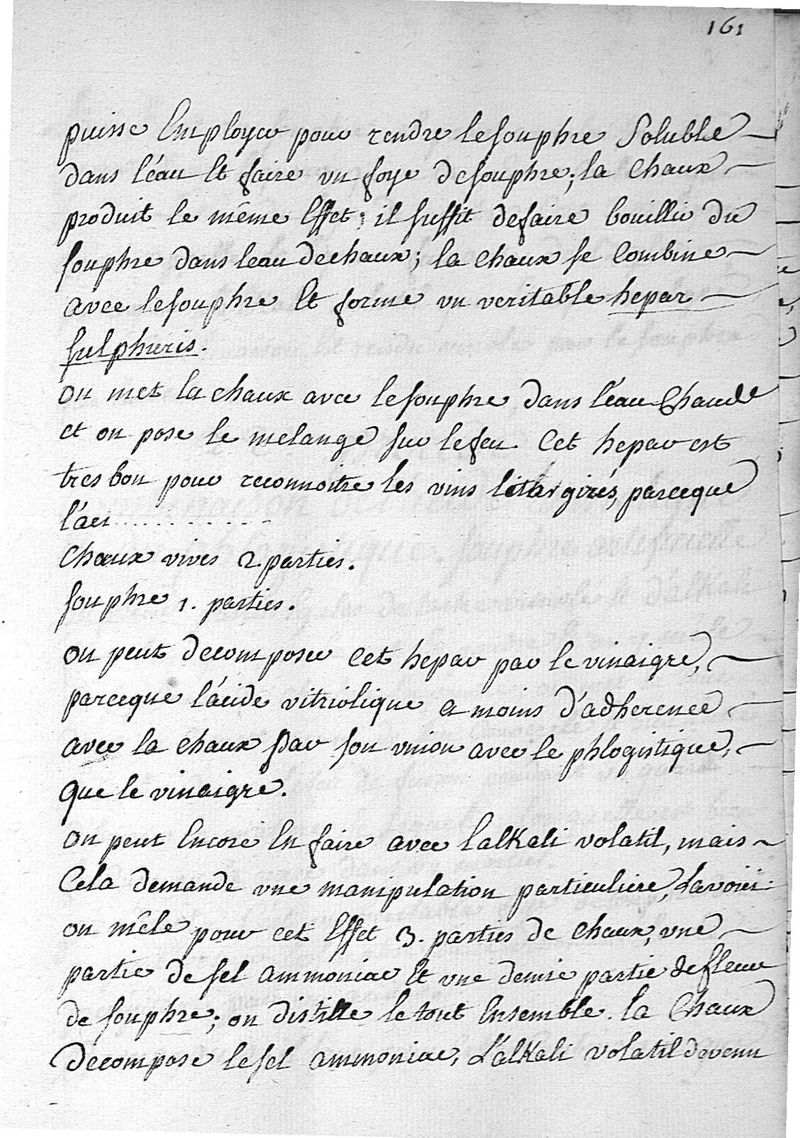 161
puisse Employer pour rendre le souphre Soluble
dans l'éau Et faire un foye de souphre; la Chaux
produit le même Effet; il suffit de faire bouillir du
souphre dans leau de chaux; la chaux se Combine
avec le souphre Et forme un veritable hepar
sulphuris.
on met la chaux avec le souphre dans l'éau Chaude
et on pose le melange sur le feu. Cet hepar est
tres bon pour reconnoitre les vins litargirés, parceque
l'aci............
Chaux vives 2. parties.
souphre 1. parties.
on peut decomposer Cet hepar par le vinaigre,
parceque l'ácide vitriolique a moins d'adherence
avec la chaux Par son union avec le phlogistique,
que le vinaigre.
on peut Encore En faire avec l'alkali volatil, mais
Cela demande une manipulation particuliere, Savoir:
on mêle pour cet Effet 3. parties de chaux, une
partie de sel ammoniac Et une demie partie de fleur
de souphre; on distille le tout Ensemble. la Chaux
Decompose le sel ammoniac, L'alkali volatil devenu